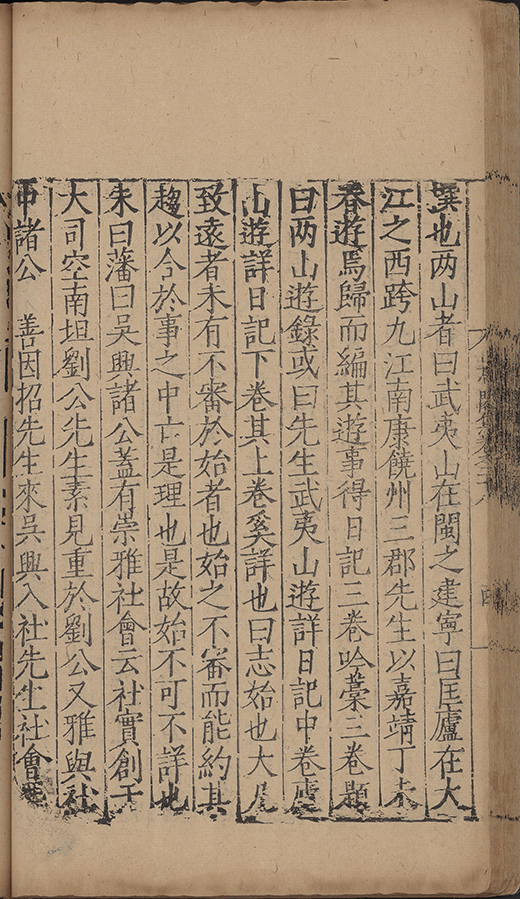 撰也两山者曰武夷山在閩之建寧曰匡廬在大
江之西跨九江南康饒州三郡先生以嘉靖丁未
春遊焉歸而編其遊事得日記三卷吟藁三卷題
曰两山遊錄或曰先生武夷山遊詳日記中卷廬
山遊詳日記下卷其上卷奚詳也曰志始也大凡
致遠者未有不審於始者也始之不審而能約其
趨以合於事之中亡是理也是故始不可不詳也
朱曰藩曰吳興諸公蓋有崇雅社會云社實創于
大司空南坦劉公先生素見重於劉公又雅與社
中諸公 善因招先生來吳興入社先生社會